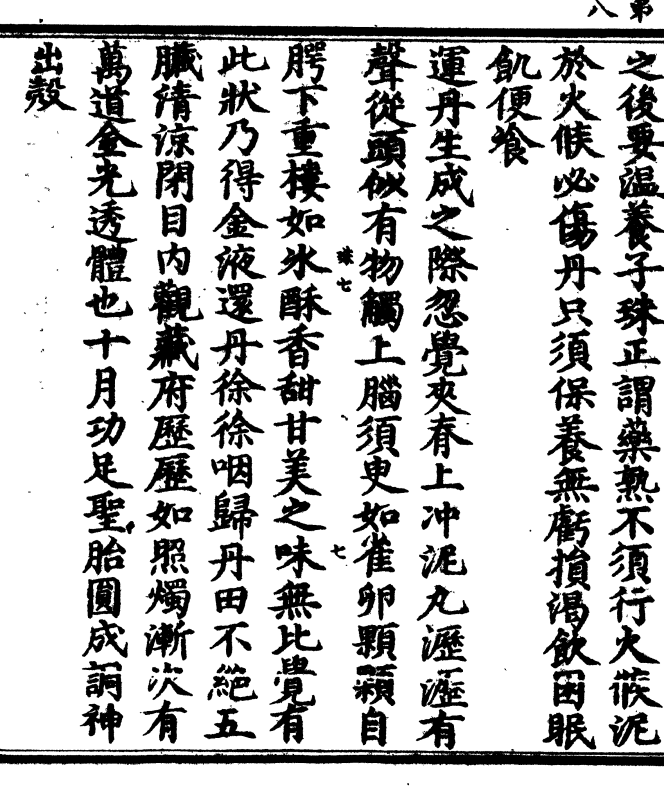 第
八
之後要温養子珠正謂藥熟不須行火候泥
於火候必傷丹只須保養無虧損渴飲困眠
飢便飡
運丹生成之際忽覺夾脊上冲泥丸瀝瀝有
聲從頭似有物觸上腦須臾如雀卵顆顆自
腭下重樓如氷酥香甜甘美之味無比覺有
此狀乃得金液還丹徐徐咽歸丹田不絕五
臟清涼閉目内觀藏府歷歷如照燭漸次有
萬道金光透體也十月功足聖胎圓成調神
出殼
珠七
七